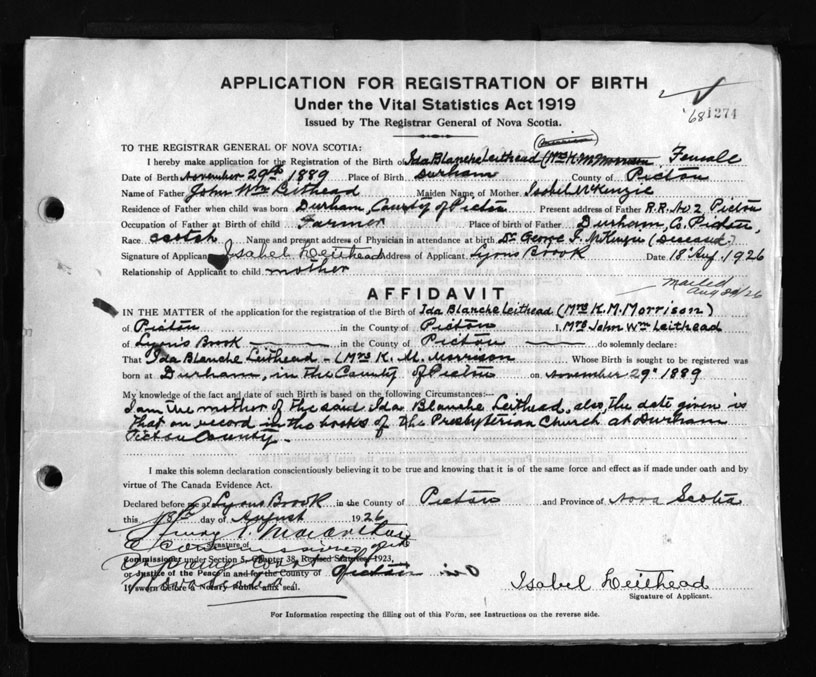 APPLICATION FOR REGISTRATION OF BIRTH
Under the Vital Statistics Act 1919
Issued by The Registrar General of Nova Scotia.
'68 1274
TO THE REGISTRAR GENERAL OF NOVA SCOTIA:
I hereby make application for the Registration of the Birth of Ida Blanche Leithead (Mrs K. M. Morrison Female
Date of Birth November 29th 1889 Place of Birth Durham County of Pictou
Name of Father John Wm Leithead Maiden Name of Mother Isobel McKenzie
Residence of Father when child was born Durham, County of Pictou Present address of Father R.R. No 2 Pictou
Occupation of Father at Birth of child Farmer Place of birth of Father Durham, Co. Pictou,
Race Scotch Name and present address of Physician in attendance at birth Dr George McKenzie (Diseased)
Signature of Applicant Isabel Leithead Address of Applicant Lyons Brook Date 18 Aug. 1926
Relationship of Applicant to child mother
mailed
Aug 20/26
AFFIDAVIT
IN THE MATTER of the application for the registration of the Birth of Ida Blanche Leithead (Mrs K. M. Morrison)
of Pictou in the County of Pictou I, Mrs John Wm Leithead
of Lyons Brook in the County of Pictou do solemnly declare:
That Ida Blanche Leithead - (Mrs K. M. Morrison Whose Birth is sought to be registered was
born at Durham, in the County of Pictou on November 29th 1889
My knowledge of the fact and date of such Birth is based on the following Circumstances:—
I am the mother of the said Ida Blanche Leithead, also, the date given is
that on record in the books of the Presbyterian Church at Durham
Pictou County.
I make this solemn declaration conscientiously believing it to be true and knowing that it is of the same force and effect as if made under oath and by
virtue of The Canada Evidence Act.
Declared before me at Lyons Brook in the County of Pictou and Province of Nova Scotia
this 18th day of August 1926
Signature of
Commissioner under Section 5, Chapter 38, Revised Statutes 1923,
or Justice of the Peace in and for the County of Pictou
If sworn before a Notary Public affix seal.
Isabel Leithead
Signature of Applicant.
For Information respecting the filling out of this Form, see Instructions on the reverse side.